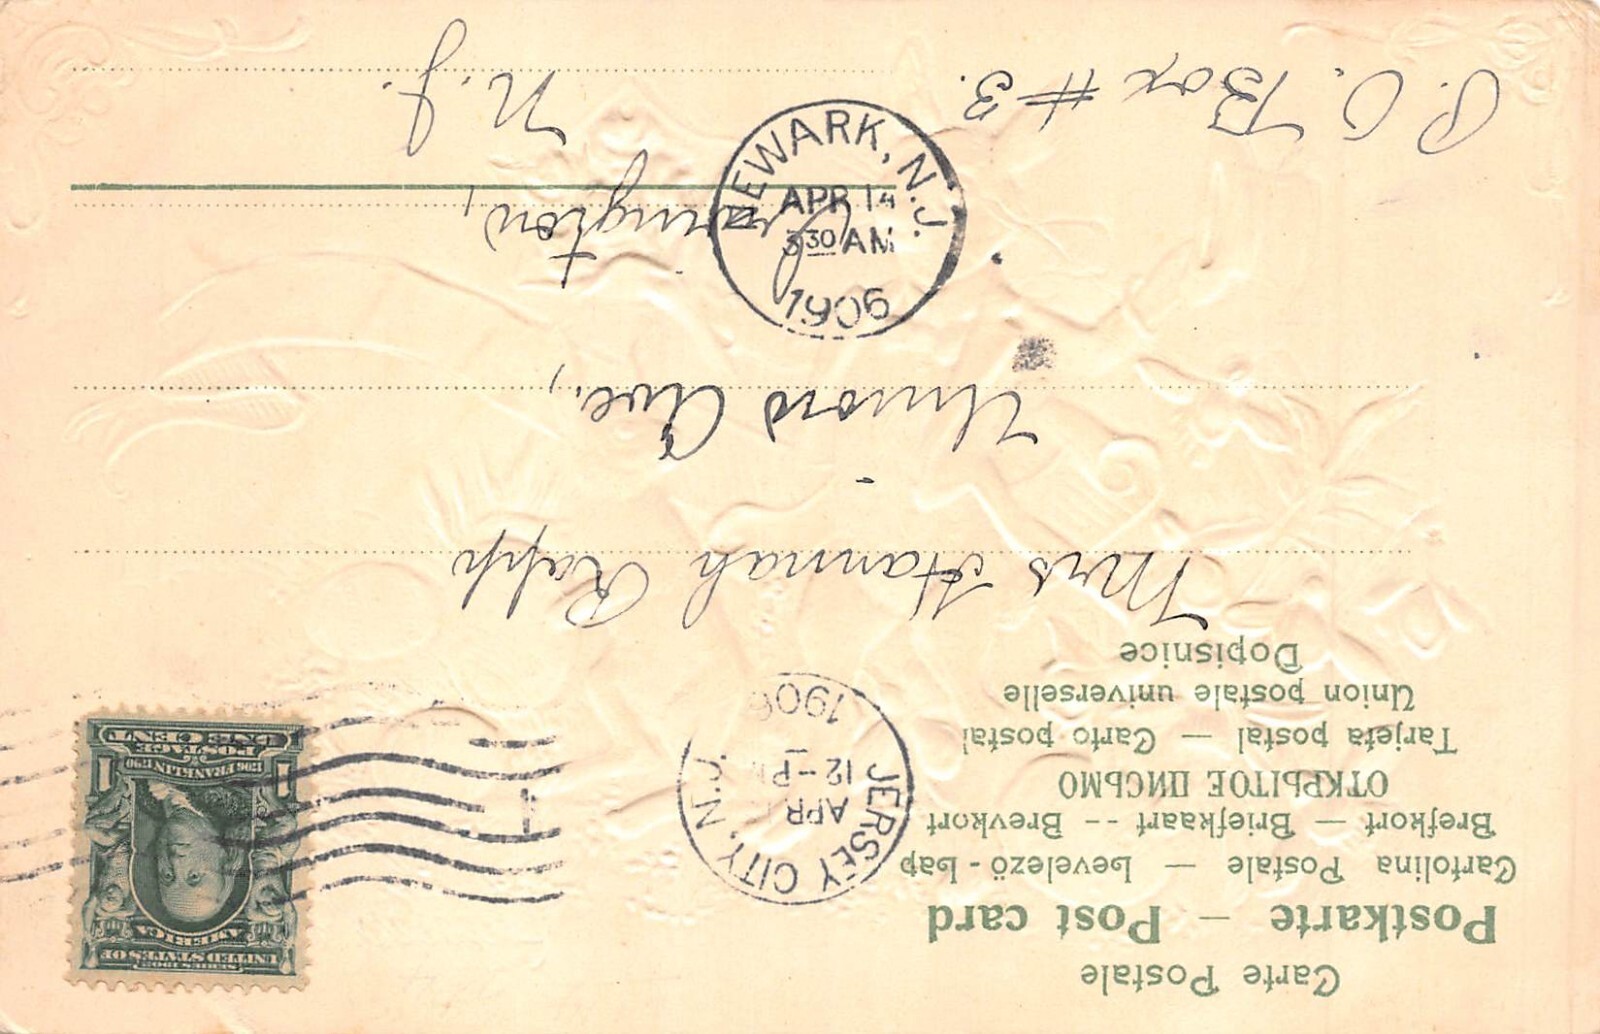 Carte Postale
Postkarte — Post card
Cartolina Postale — Levelező-Lap
Brefkort — Briefkaart -- Brevkort
ОТКРЫТОЕ ПИСЬМО
Tarjeta postal — Carto postal
Union postale universelle
Dopisnice
JERSEY CITY, N.J.
APR
12-P
1906
SERIES 1902
UNITED STATES OF
AMERICA
1706 FRANKLIN 1790
1 POSTAGE 1
ONE CENT
1
Mrs Hannah Rapp
Union Ave.,
Irvington,
N.J.
P.O. Box #3.
NEWARK, N.J.
APR 14
3 30 AM
1906